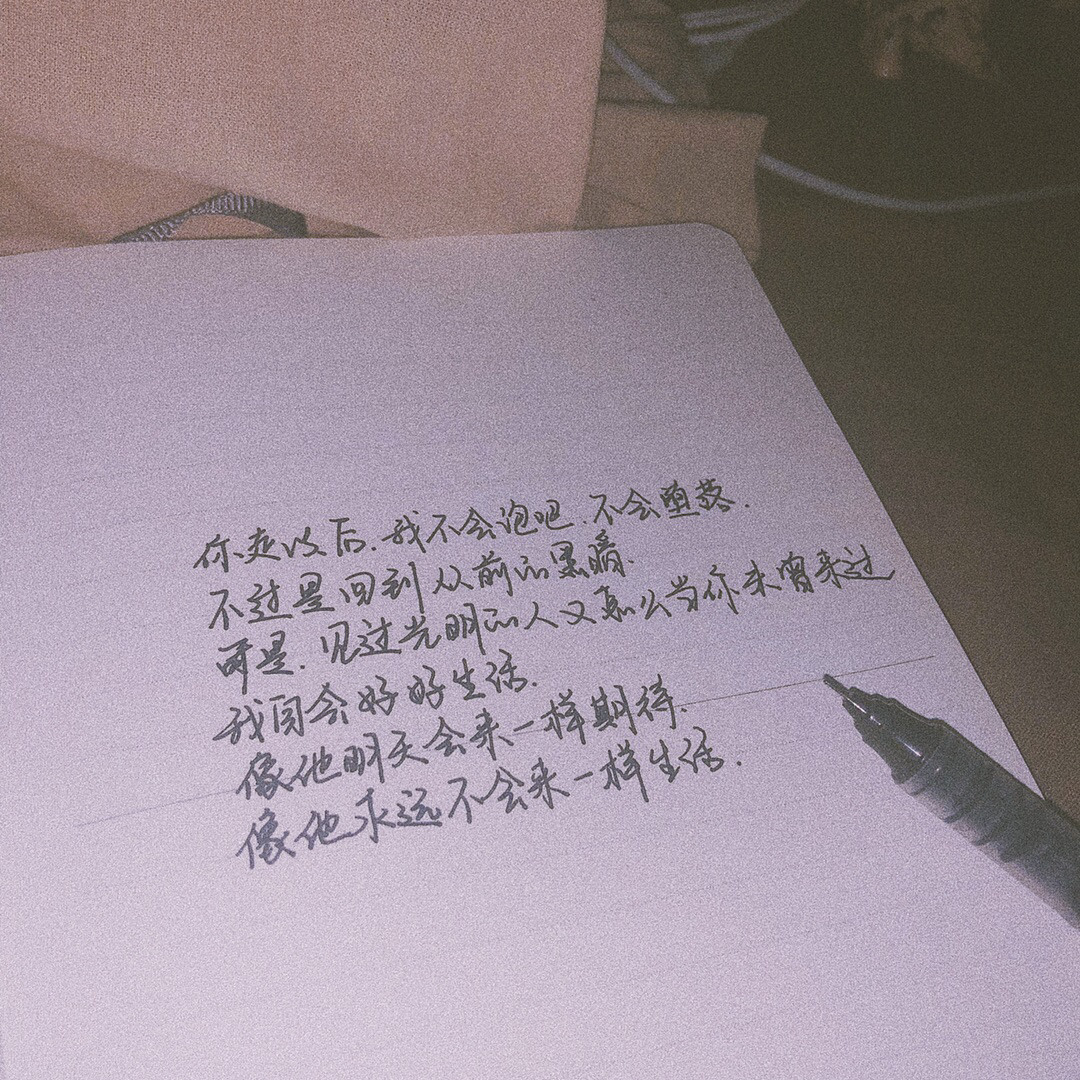 你走以后.我不会泡吧.不会堕落.
不过是回到从前的黑暗.
可是.见过光明的人又怎么当你未曾来过
我自会好好生活.
像他明天会来一样期待.
像他永远不会来一样生活.